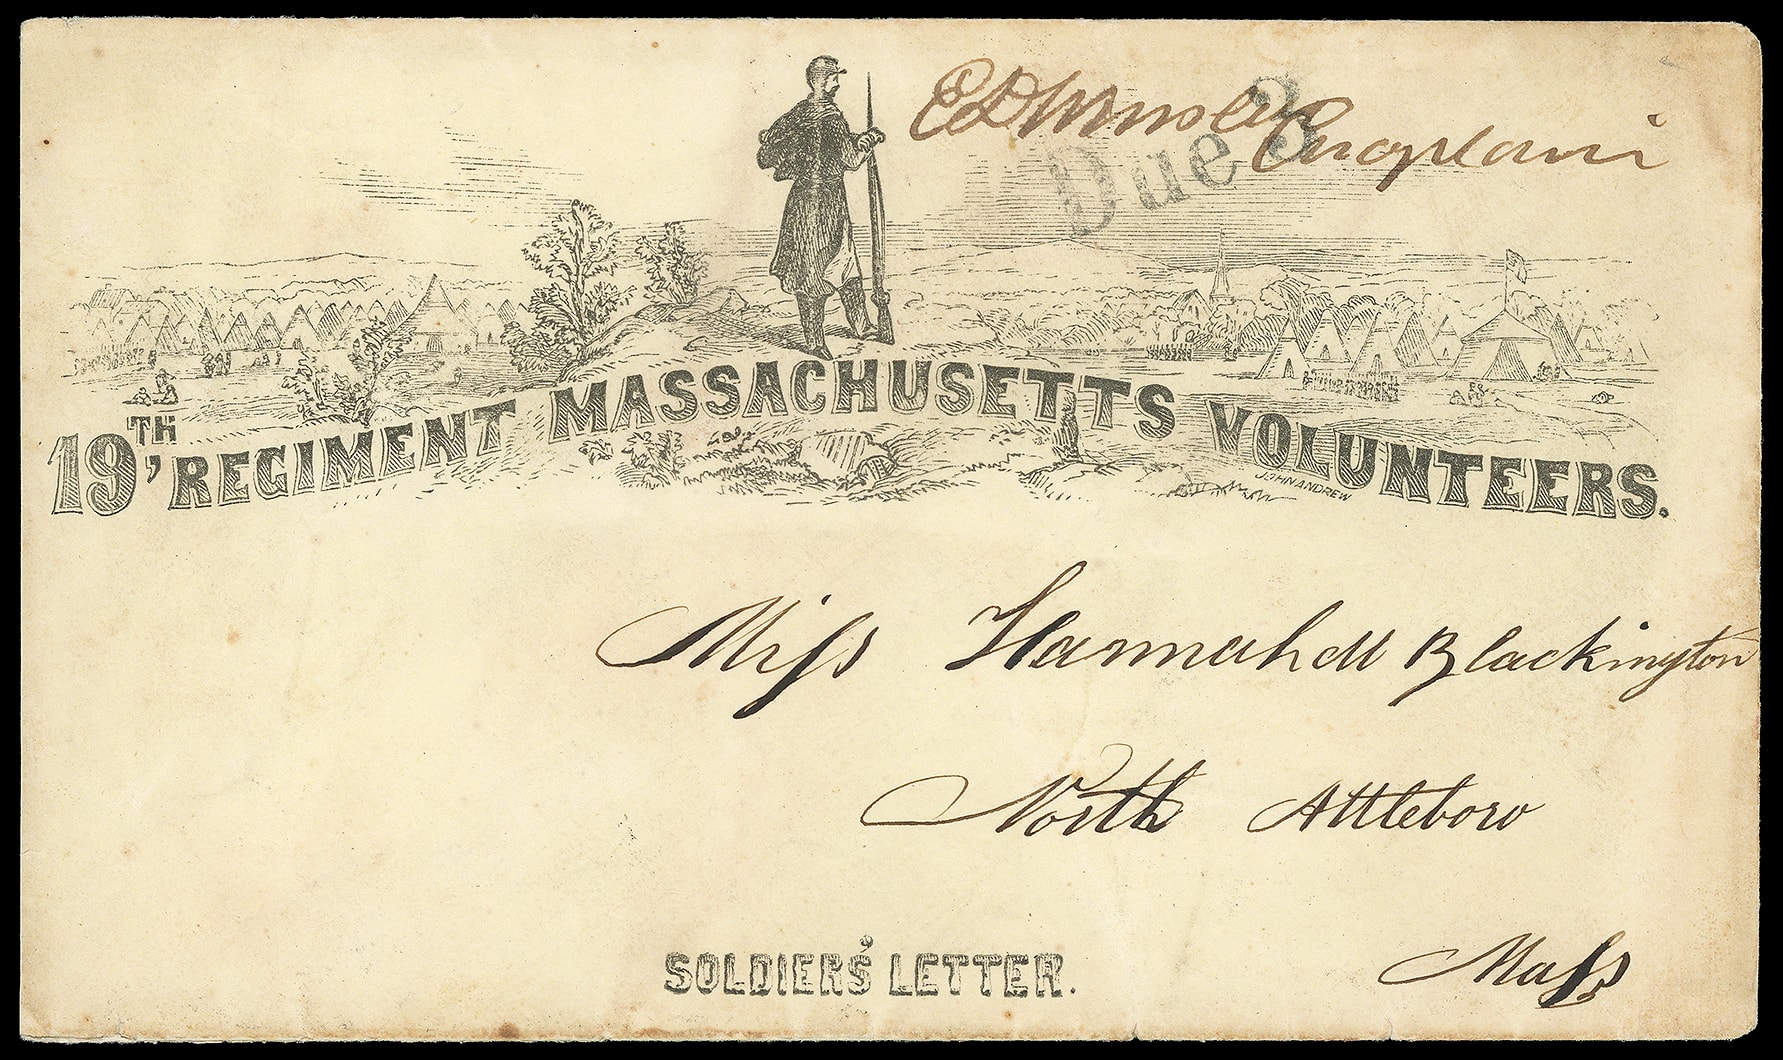 Chaplain
Due 3
19TH, REGIMENT MASSACHUSETTS VOLUNTEERS.
JOHN ANDREW
Miss Hannah M Blackington
North Attleboro
Mass
SOLDIERS' LETTER.